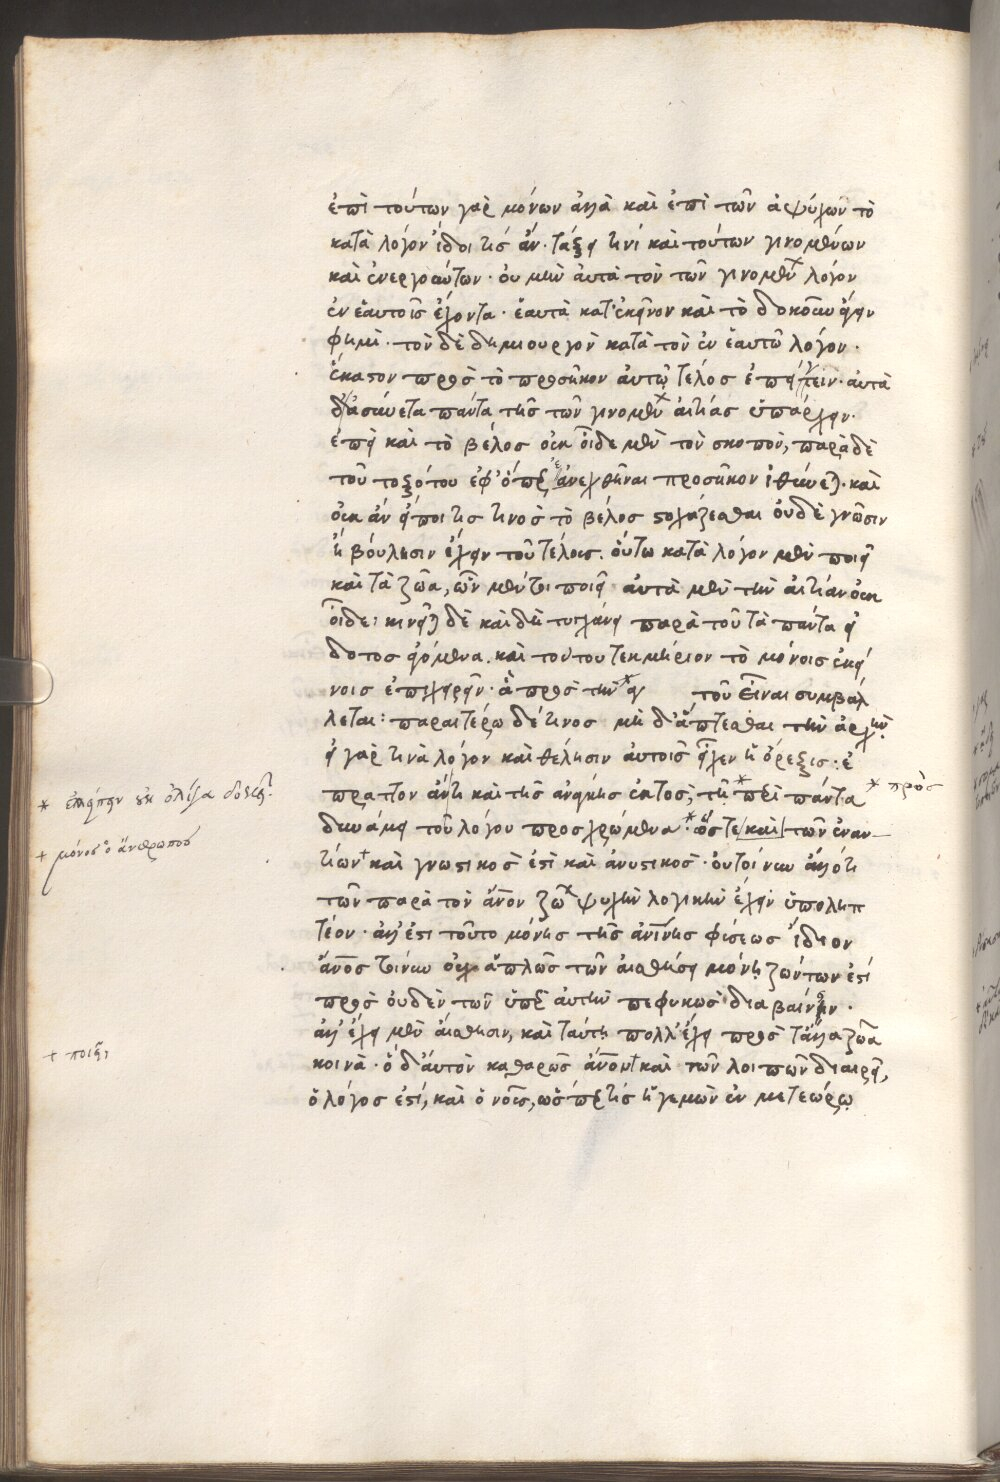 ἐπὶ τούτων γὰρ μόνων ἀλλὰ καὶ ἐπὶ τῶν ἀψύχων τὸ
κατὰ λόγον ἴδοι τίς ἄν· τάξει τινί καὶ τούτων γινομένων
καὶ ἐνεργούντων· οὐ μὴν αὐτὰ τὸν τῶν γινομένων λόγον
ἐν ἑαυτοῖς ἔχοντα· ἑαυτὰ κατ' ἐκεῖνον καὶ τὸ δοκοῦν ἄγειν
φημὶ· τὸν δὲ δημιουργὸν κατὰ τὸν ἐν ἑαυτῶ λόγον·
ἕκαστον πρὸς τὸ προσῆκον αὐτῷ τέλος ἐπείγειν· αὐτὰ
δ' ἀσύνετα πάντα τῆς τῶν γινομένων αἰτίας ὑπάρχειν·
ἐπεὶ καὶ τὸ βέλος οὐκ οἶδε μὲν τὸν σκοπὸν, παρὰ δὲ
τοῦ τοξότου ἐφ' ὅπερ ἀνεχθῆναι προσῆκον ἰθύνεται· καὶ
οὐκ ἂν εἴποι τις τινος τὸ βέλος στοχάζεσθαι οὐδὲ γνῶσιν
ἢ βούλησιν ἔχειν τοῦ τέλους. οὕτω κατὰ λόγον μὲν ποιεῖ
καὶ τὰ ζῶα, ὧν μέντοι ποιεῖ αὐτὰ μὲν τὴν αἰτίαν οὐκ
οἶδε: κινεῖται δὲ καὶ δὴ τυγχάνει παρὰ τοῦ τὰ πάντα εἰ
δότος ἀγόμενα. καὶ τούτου τεκμήριον τὸ μόνοις ἐκεί
νοις ἐπιχειρεῖν· ἃ πρὸς τὴν τοῦ εἶναι συμβάλ
λεται: παραιτέρω δέ τινος μὴ δ' ἅπτεσθαι τὴν ἀρχὴν
εἰ γὰρ τινὰ λόγον καὶ θέλησιν αὐτοῖς εἶχεν ἡ ὄρεξις: ἔ
πραττον ἄν τι καὶ τῆς ἀνάγκης ἐκτος, τῇ περὶ πάντα * πρὸς
δυνάμει τοῦ λόγου προσχρώμενα· ὥστε καὶ τῶν ἐναν-
* ἐπιχειρεῖν
+ μόνος ὁ ἄνθρωπος
τίων καὶ γνωστικὸς ἐστὶ καὶ ἀνυστικος· οὔτοι νυν ἄλλό τι
τῶν παρὰ τὸν ἄνον ζώων ψυχὴν λογικὴν ἔχειν ὑποληπ
τέον· ἀλλ' ἔστι τοῦτο μόνης τῆς ἀνίνης φύσεως ἴδιον
ἄνος τοίνυν οὐχ ἁπλῶς τῶν αἰσθήσει μόνῃ ζώντων ἐστί
πρὸς οὐδὲν τῶν ὑπὲρ αὐτὴν πεφυκὼς διαβαίνειν·
ἀλλ' ἔχει μὲν αἴσθησιν, καὶ ταύτῃ πολλ' ἔχει πρὸς τἄλλα ζῶα
+ ποιεῖ
κοινὰ· ὁ δ' αὐτὸν καθαρῶς ἄνον + καὶ τῶν λοιπῶν διαιρεῖ,
ὁ λόγος ἐστί, καὶ ὁ νοῦς, ὥσπερ τίς ἡγεμὼν ἐν μετεώρῳ